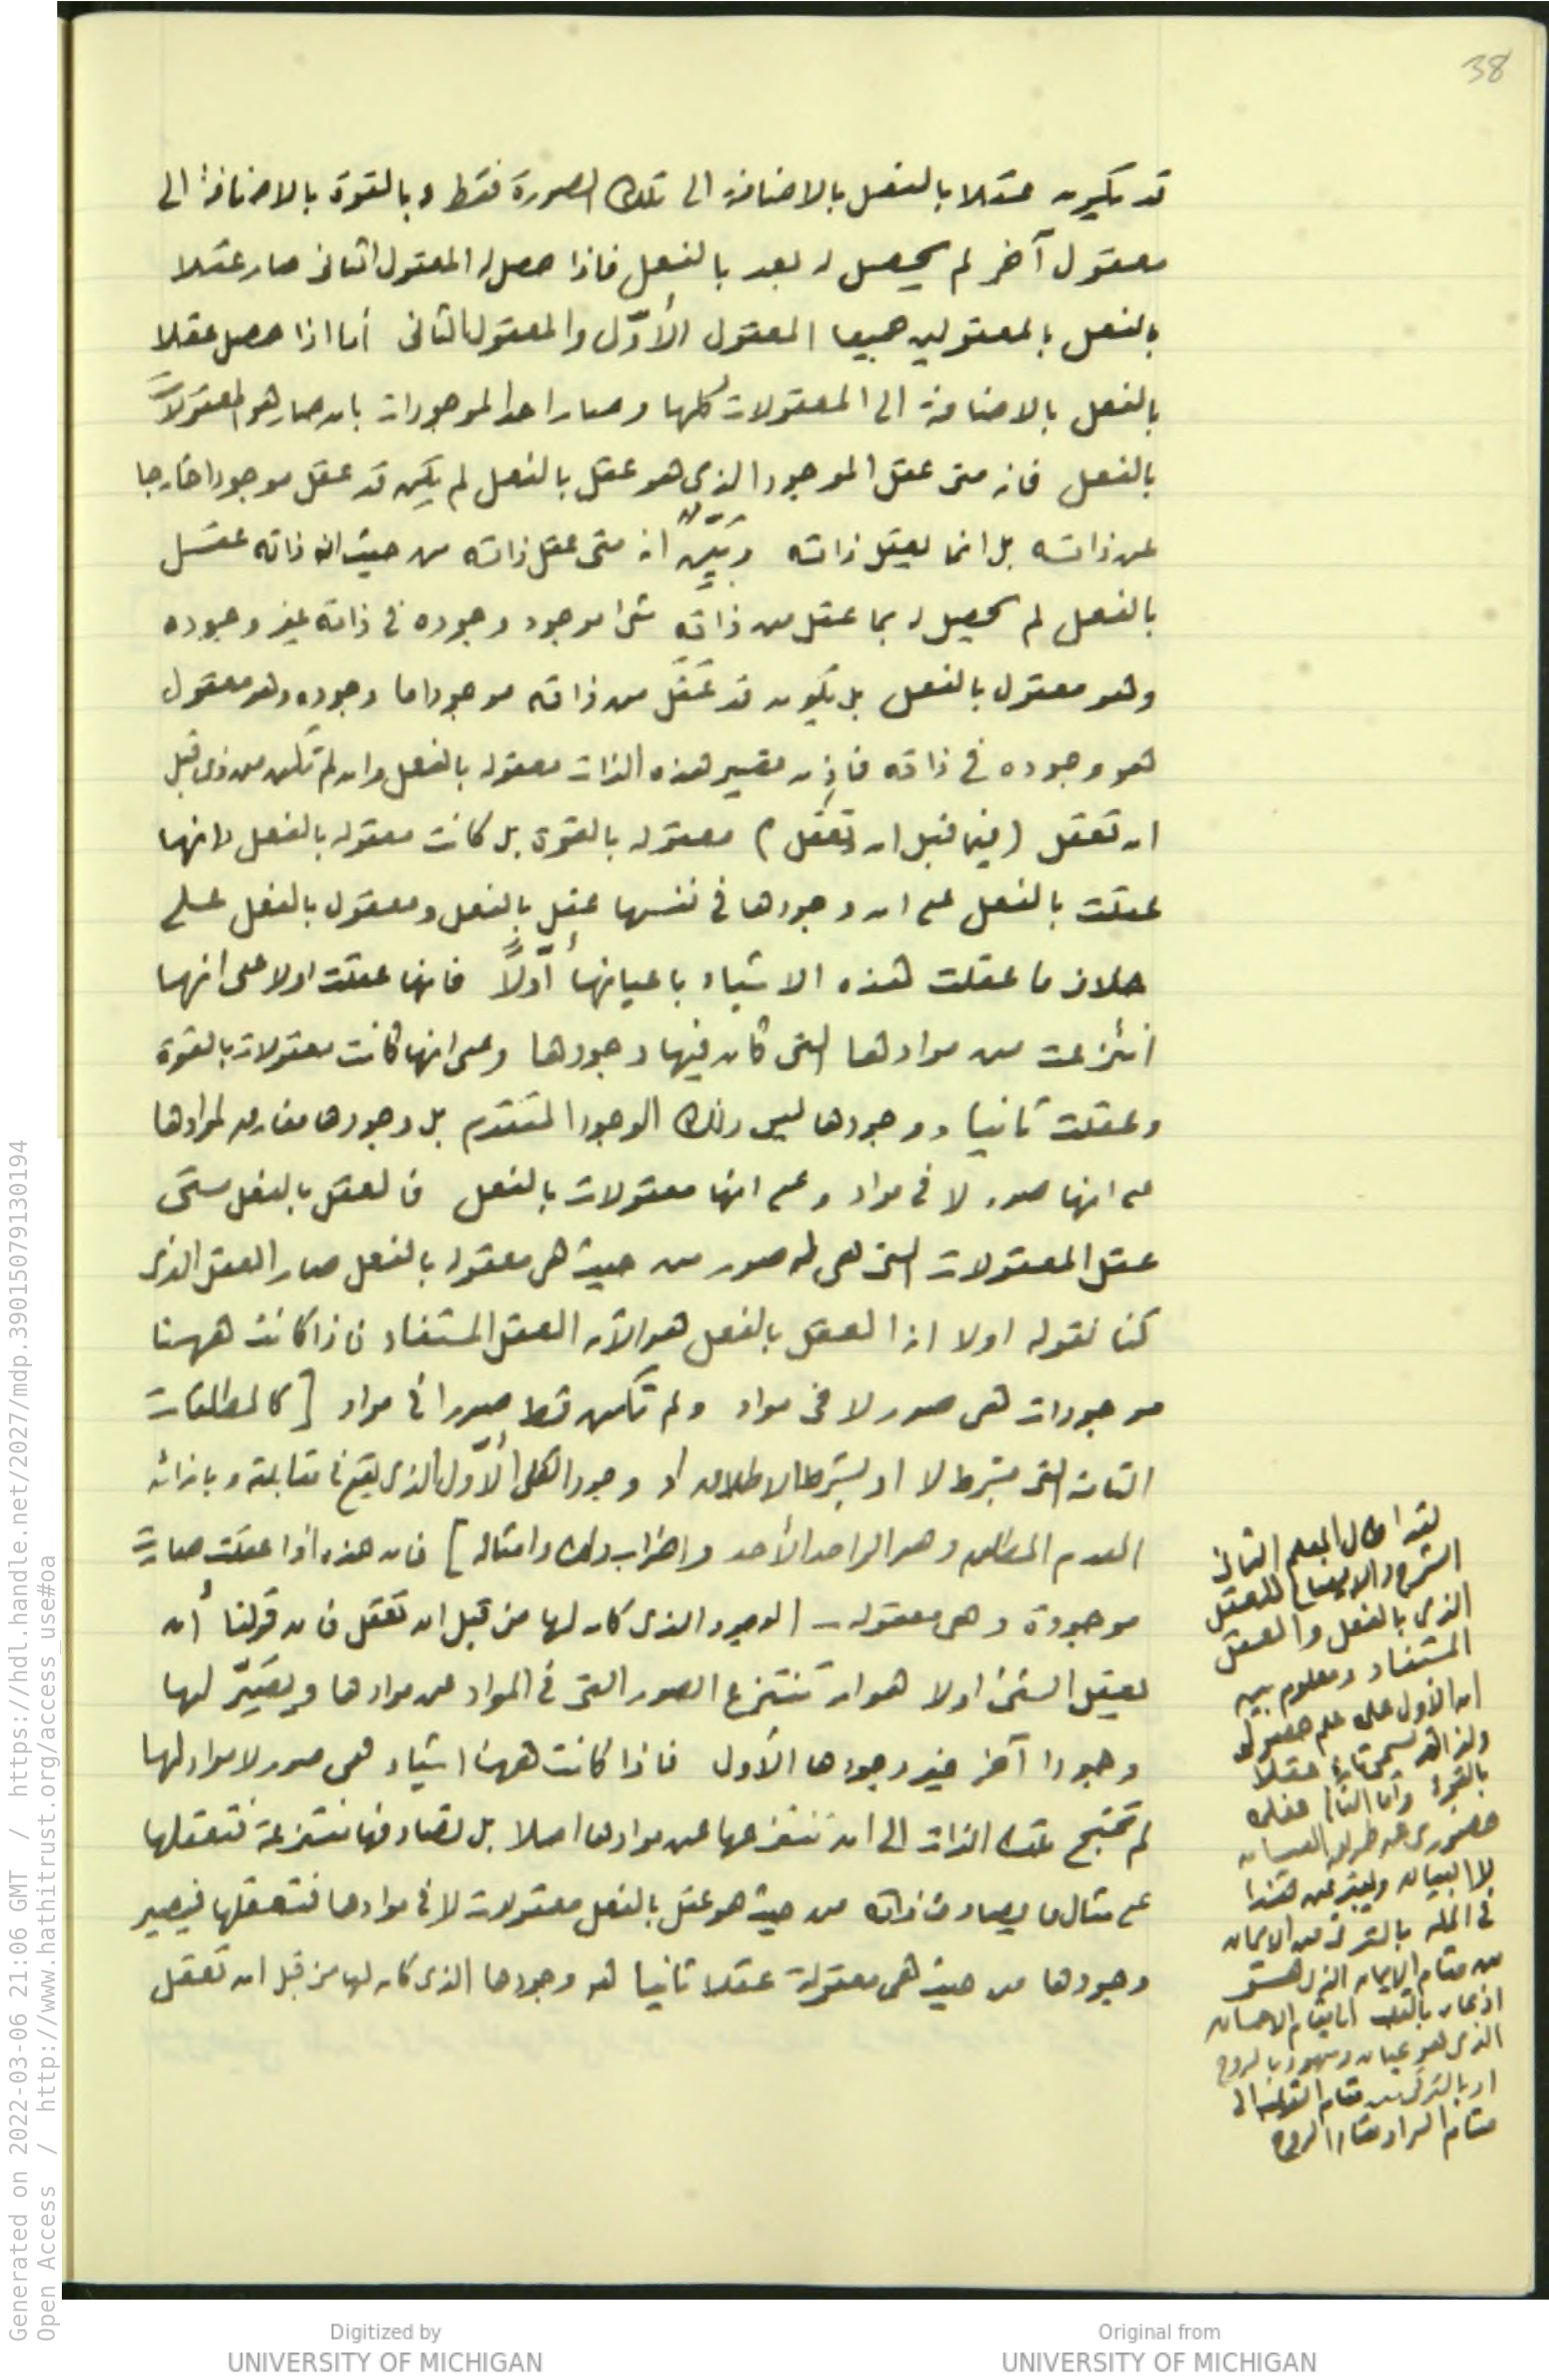 38
قد يكون عقلا بالفعل بالاضافة الى تلك الصورة فقط وبالقوة بالاضافة الى
معقول آخر لم يحصل له بعد بالفعل فاذا حصل له المعقول الثانى صار عقلا
بالفعل بالمعقولين جميعا المعقول الأوّل والمعقول الثانى أما اذا حصل عقلا
بالفعل بالاضافة الى المعقولات كلها وصار احد الموجودات بان صار هو المعقولات
بالفعل فانه متى عقل الموجود الذى هو عقل بالفعل لم يكن قد عقل موجودا خارجا
عن ذاته بل انما يعقل ذاته وبَيّن انه متى عقل ذاته من حيث ان ذاته عقل
بالفعل لم يحصل له بما عقل من ذاته شئ موجود وجوده فى ذاته غير وجوده
وهو معقول بالفعل بل يكون قد عَقَلَ من ذاته موجودا ما وجوده وهو معقول
هو وجوده فى ذاته فاذن تصير هذه الذات معقوله بالفعل وان لم تكن من ذى قبل
ان تعقل (فيما قبل ان تعقل) معقوله بالقوة بل كانت معقوله بالفعل الا انها
عقلت بالفعل على ان وجودها فى نفسها عقل بالفعل ومعقول بالفعل على
خلاف ما عقلت هذه الاشياء باعيانها أوّلاً فانها عقلت اولا على انها
انتُزعت من موادها التى كان فيها وجودها وعلى انها كانت معقولات بالقوة
وعقلت ثانيا ووجودها ليس ذلك الوجود المتقدم بل وجودها مفارق لموادها
على انها صور لا فى مواد وعلى انها معقولات بالفعل فالعقل بالفعل متى
عقل المعقولات التى هى له صور من حيث هى معقوله بالفعل صار العقل الذى
كنا نقوله اولا انه العقل بالفعل هو الآن العقل المستفاد فاذا كانت ههنا
موجودات هى صور لا فى مواد ولم تكن قط صورا فى مواد [كالمطلقات
التامة التى بشرط لا او بشرط الاطلاق او وجود الكل الأوّل الذى يقع فى مقابلة وبازائه
العدم المطلق وهو الواحد الأحد واضراب ذلك وامثاله] فان هذه اذا عقلت صارت
موجودة وهى معقوله ـ الوجود الذى كان لها من قبل ان تعقل فان قولنا أن
يعقل الشئ اولا هو ان تنتزع الصور التى فى المواد عن موادها ويصيّر لها
وجودا آخر غير وجودها الأول فاذا كانت ههنا اشياء هى صور لا مواد لها
لم تحتج تلك الذات الى ان تنتزعها عن موادها اصلا بل تصادفها منتزعة فتعقلها
على مثال ما يصادف ذاته من حيث هو عقل بالفعل معقولات لا فى موادها فتعقلها فيصير
وجودها من حيث هى معقولة عقلا ثانيا هو وجودها الذى كان لها من قبل ان تعقل
لقد اطال المعلم الثانى
الشرح والايضاح للعقل
الذى بالفعل والعقل
المستفاد ومعلوم بين
ان الأول على علم حصولى
عقلا
بالقوة وأما الثانى فعلى
حضورى عن طريق العيان
لا البيان ويعبر عن هذا
فى المله بالترقى من الايمان
من مقام الايمان الذى هو
اذعان بالقلب الى مقام الاحسان
الذى هو عيان وشهود بالروح
او بالترقى من مقام القلب الى
مقام السر او مقام الروح
Generated on 2022-03-06 21:06 GMT / https://hdl.handle.net/2027/mdp.39015079130194
Open Access / http://www.hathitrust.org/access_use#oa
Digitized by
UNIVERSITY OF MICHIGAN
Original from
UNIVERSITY OF MICHIGAN